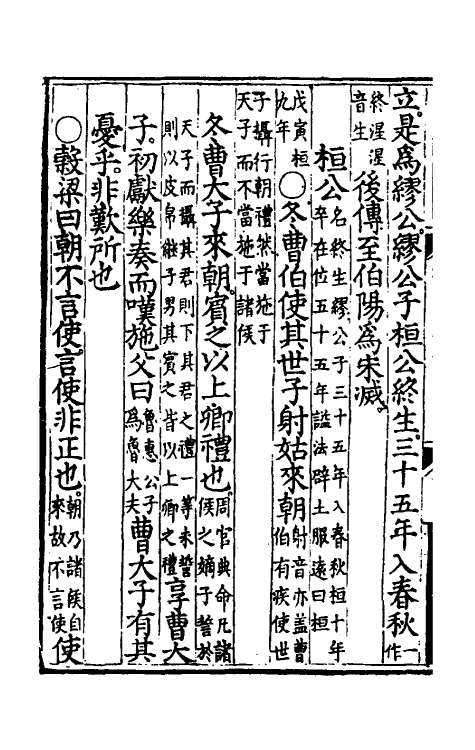 立是爲繆公。繆公子桓公終生。三十五年入春秋一作
終湦湦音生後傳至伯陽爲宋滅。
桓公名終生繆公子三十五年入春秋桓十年卒在位五十五年謚法辟土服遠曰桓
戊寅桓九年○冬曹伯使其世子射姑來朝射音亦蓋曹伯有疾使世
子攝行朝禮然當施于天子而不當施于諸侯
冬曹大子來朝。賓之以上卿禮也。周官典命凡諸侯之嫡子誓於
天子而攝其君則下其君之禮一等未誓則以皮帛繼子男其賓之皆以上卿之禮享曹大
子。初獻樂奏而嘆施父曰魯惠公子爲魯大夫曹大子有其
憂乎。非歎所也
○穀梁曰朝不言使言使非正也。朝乃諸侯自來故不言使使